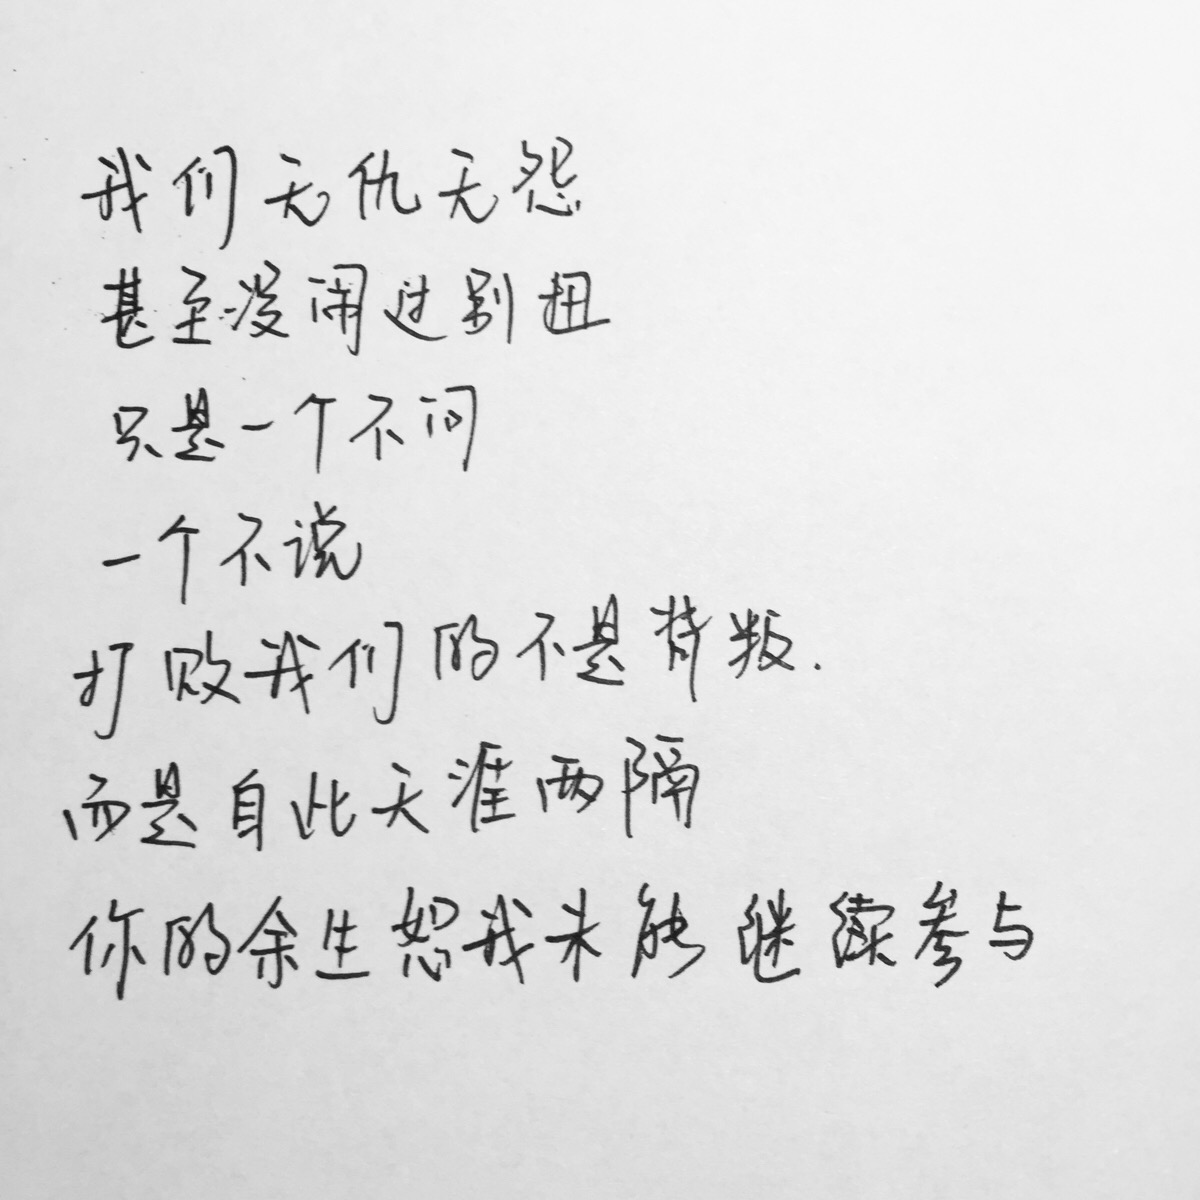 我们无仇无怨
甚至没闹过别扭
只是一个不问
一个不说
打败我们的不是背叛.
而是自此天涯两隔
你的余生恕我未能继续参与